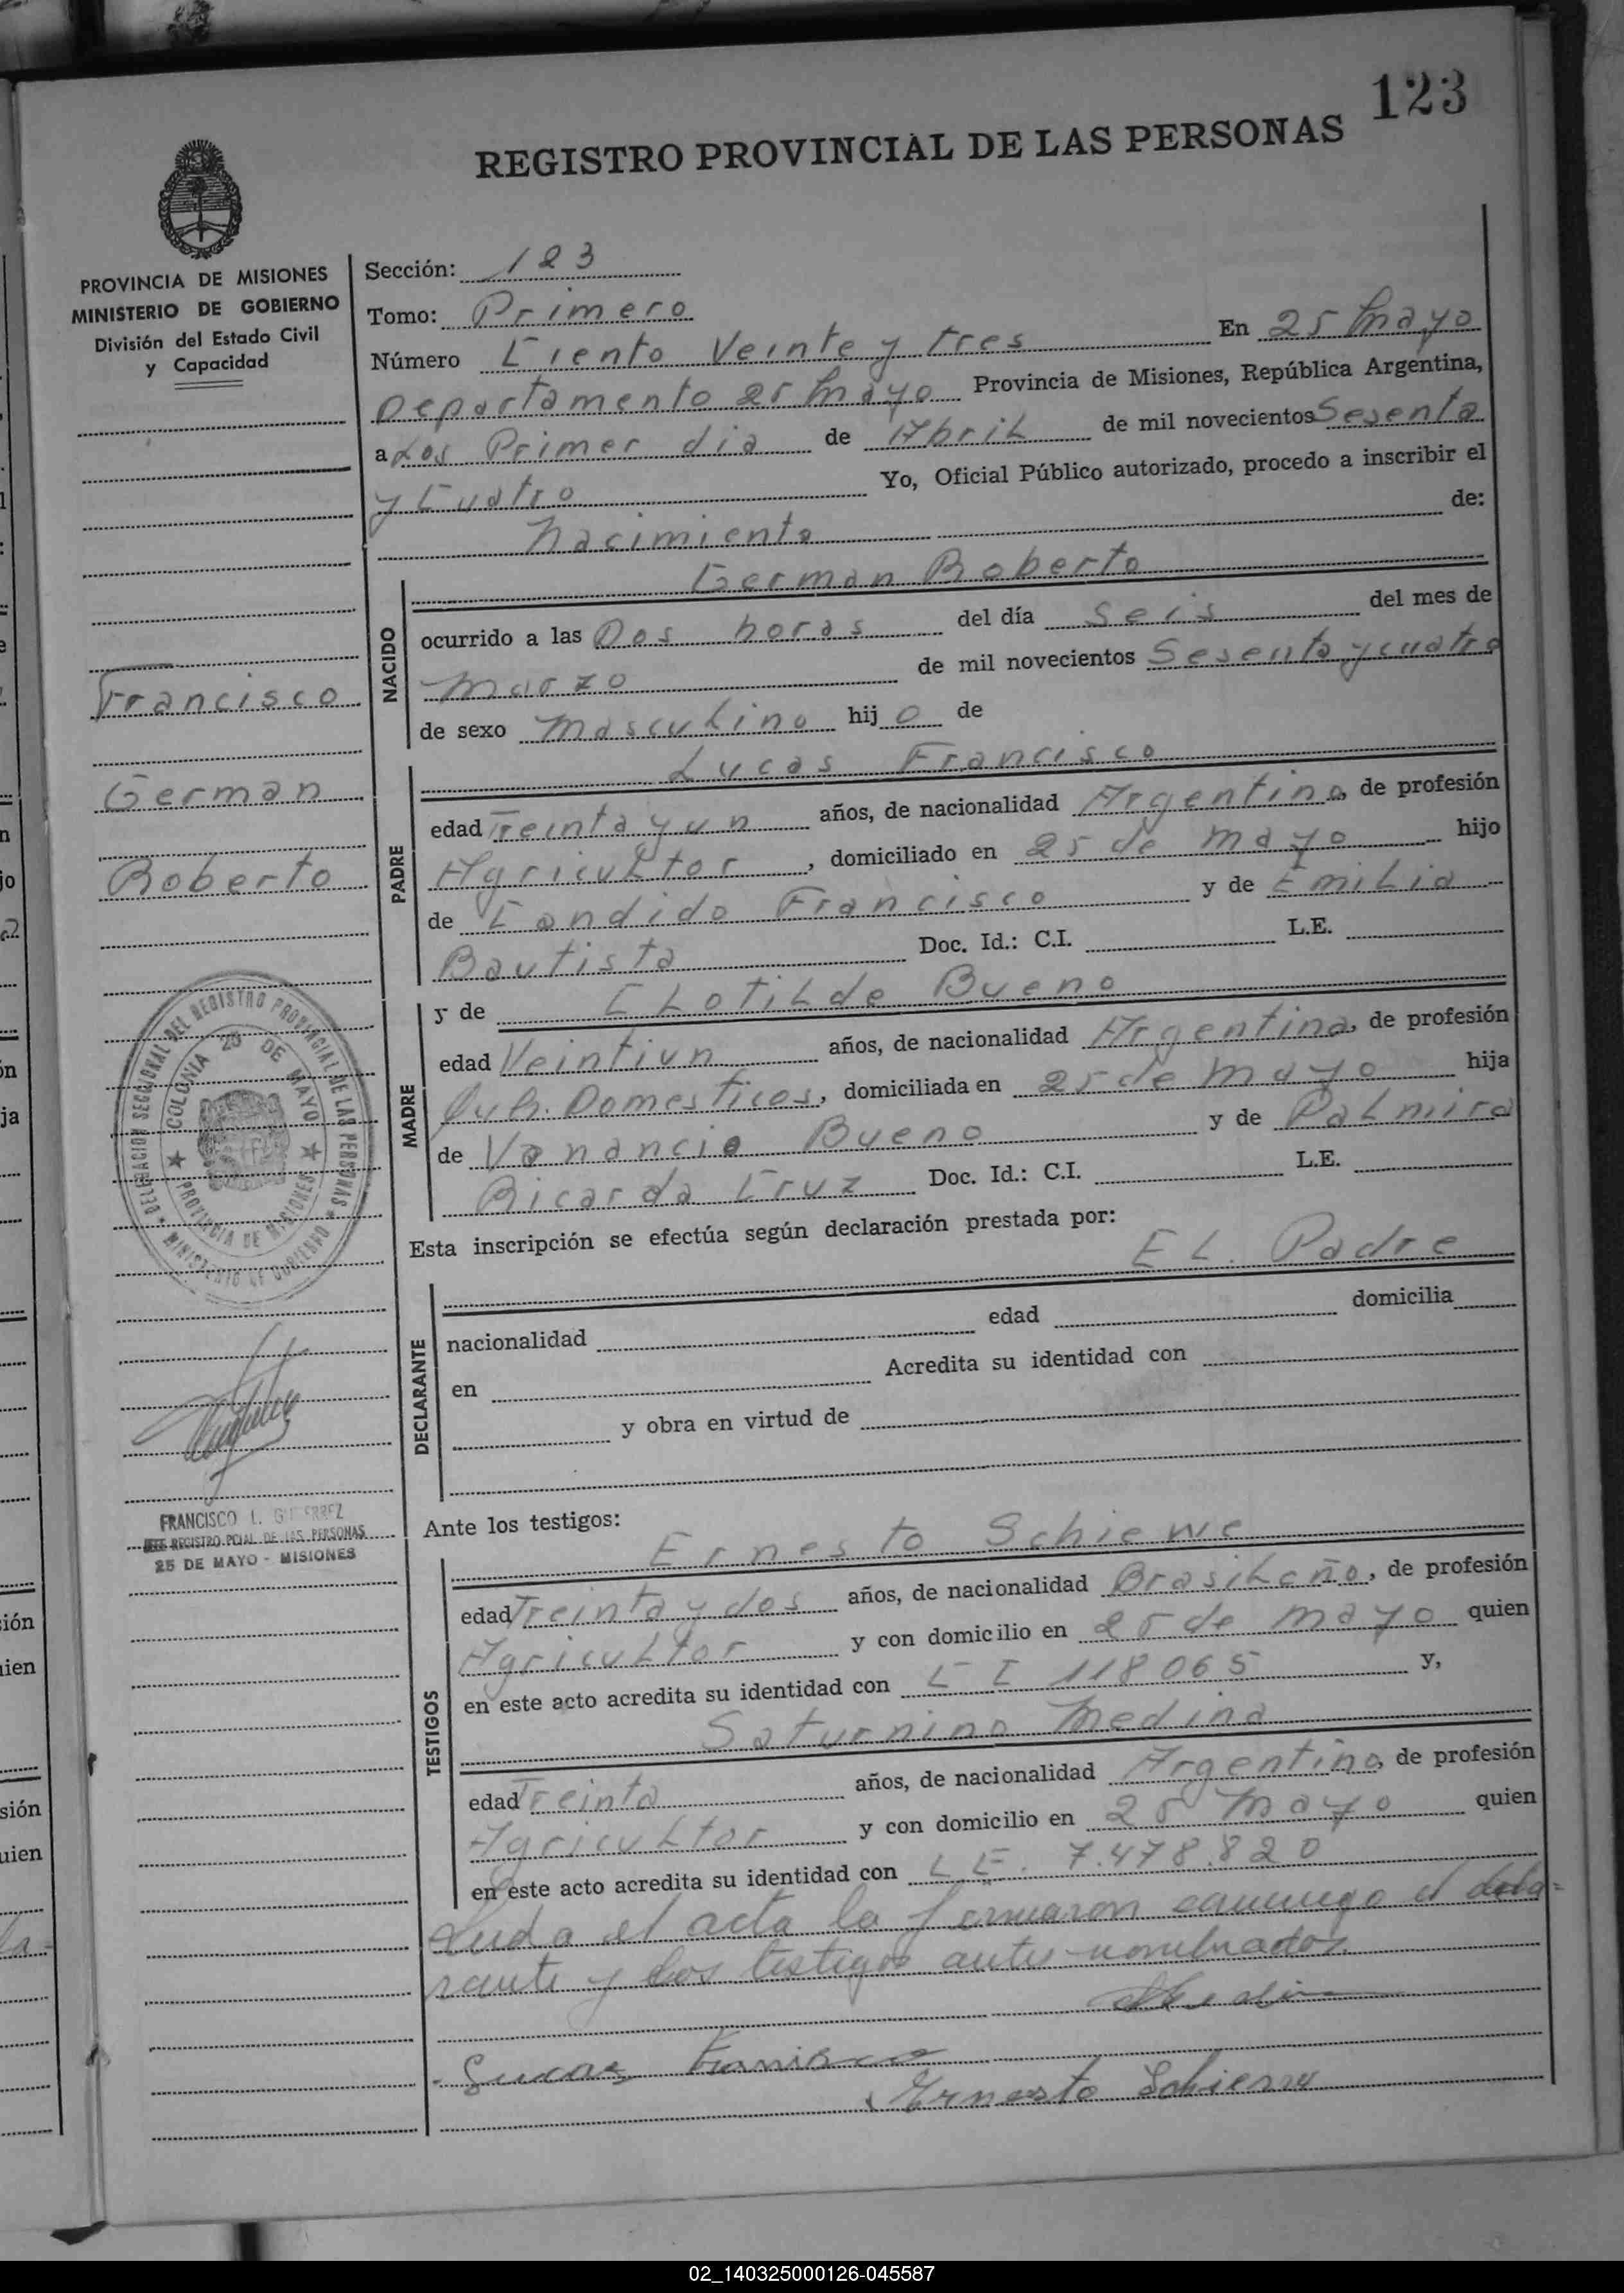 123
REGISTRO PROVINCIAL DE LAS PERSONAS
PROVINCIA DE MISIONES
MINISTERIO DE GOBIERNO
División del Estado Civil
y Capacidad
Francisco
German
Roberto
DELEGACION SECCIONAL DEL REGISTRO PROVINCIAL DE LAS PERSONAS
MINISTERIO DE GOBIERNO
COLONIA 25 DE MAYO
PROVINCIA DE MISIONES
FRANCISCO I. GUTIERREZ
JEFE REGISTRO PCIAL DE LAS PERSONAS
25 DE MAYO - MISIONES
Sección: 123
Tomo: Primero
Número Ciento Veinte y tres En 25 Mayo
Departamento 25 Mayo Provincia de Misiones, República Argentina,
a Los Primer dia de Abril de mil novecientos Sesenta
y Cuatro Yo, Oficial Público autorizado, procedo a inscribir el
Nacimiento de:
NACIDO
German Roberto
ocurrido a las Dos horas del día Seis del mes de
Marzo de mil novecientos Sesenta y cuatro
de sexo Masculino hijo de
PADRE
Lucas Francisco
edad Treinta y un años, de nacionalidad Argentino, de profesión
Agricultor, domiciliado en 25 de Mayo hijo
de Candido Francisco y de Emilia
Bautista Doc. Id.: C.I. L.E.
MADRE
y de Clotilde Bueno
edad Veintiun años, de nacionalidad Argentina, de profesión
Domesticos, domiciliada en 25 de Mayo hija
de Vanancio Bueno y de Palmira
Ricarda Cruz Doc. Id.: C.I. L.E.
Esta inscripción se efectúa según declaración prestada por:
El. Padre
DECLARANTE
nacionalidad edad domicilia
en Acredita su identidad con
y obra en virtud de
Ante los testigos:
TESTIGOS
Ernesto Schiewe
edad Treinta y dos años, de nacionalidad Brasileño, de profesión
Agricultor y con domicilio en 25 de Mayo quien
en este acto acredita su identidad con C I 118065 y,
Saturnino Medina
edad Treinta años, de nacionalidad Argentino, de profesión
Agricultor y con domicilio en 25 Mayo quien
en este acto acredita su identidad con L E. 7.478.820
Leida el acta la firmaron conmigo el decla-
rante y los testigos antes nombrados
Lucas Francisco
Ernesto Schiewe
02_140325000126-045587